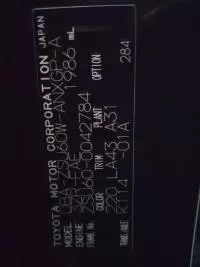 TOYOTA MOTOR CORPORATION JAPAN
MODEL DBA-ZSU60W-ANXGP-A
ENGINE 3ZR-FAE 1986 mL
FRAME No. ZSU60-0042784
COLOR TRIM PLANT OPTION
220 LA43 A31 284
TRANS./AXLE K114 -01A